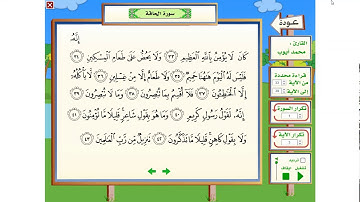 سورة الحاقة
إِنَّهُۥ
كَانَ لَا يُؤْمِنُ بِٱللَّهِ ٱلْعَظِيمِ ٣٣ وَلَا يَحُضُّ عَلَىٰ طَعَامِ ٱلْمِسْكِينِ ٣٤
فَلَيْسَ لَهُ ٱلْيَوْمَ هَٰهُنَا حَمِيمٌ ٣٥ وَلَا طَعَامٌ إِلَّا مِنْ غِسْلِينٍ ٣٦ لَّا يَأْكُلُهُۥٓ
إِلَّا ٱلْخَٰطِـُٔونَ ٣٧ فَلَآ أُقْسِمُ بِمَا تُبْصِرُونَ ٣٨ وَمَا لَا تُبْصِرُونَ ٣٩
إِنَّهُۥ لَقَوْلُ رَسُولٍ كَرِيمٍ ٤٠ وَمَا هُوَ بِقَوْلِ شَاعِرٍ قَلِيلًا مَّا تُؤْمِنُونَ ٤١
وَلَا بِقَوْلِ كَاهِنٍ قَلِيلًا مَّا تَذَكَّرُونَ ٤٢ تَنزِيلٌ مِّن رَّبِّ ٱلْعَٰلَمِينَ ٤٣
عودة
القارئ :
محمد أيوب
قراءة محددة
من الآية
إلى الآية
تكرار السورة
تكرار الآية
تشغيل
إيقاف